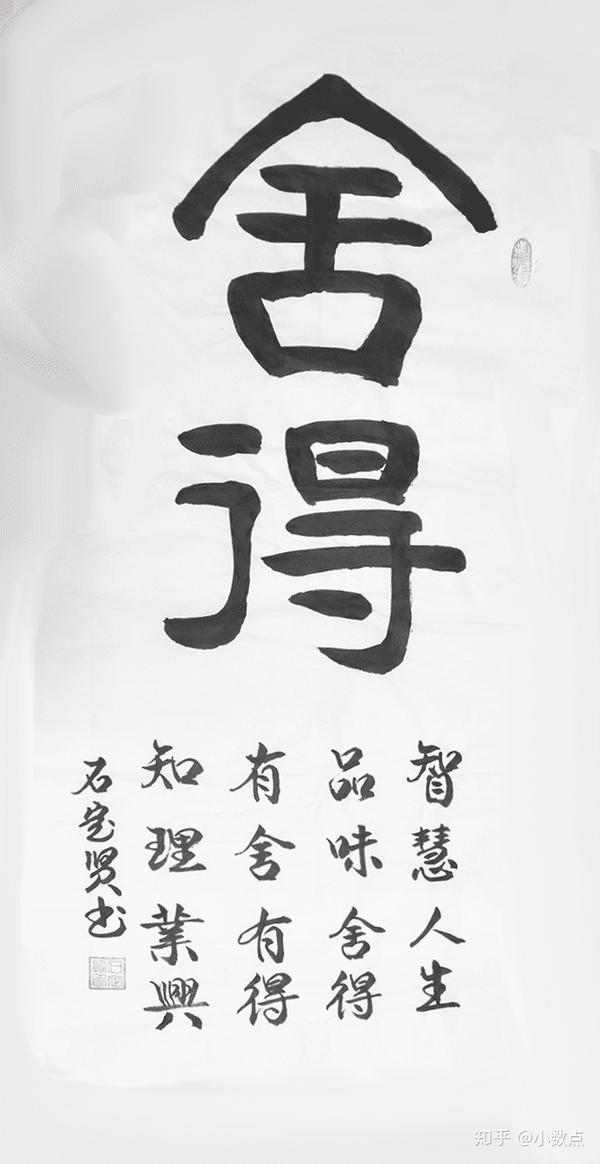 舍
得
智慧人生
品味舍得
有舍有得
知理業興
石定贤书
知乎 @小数点